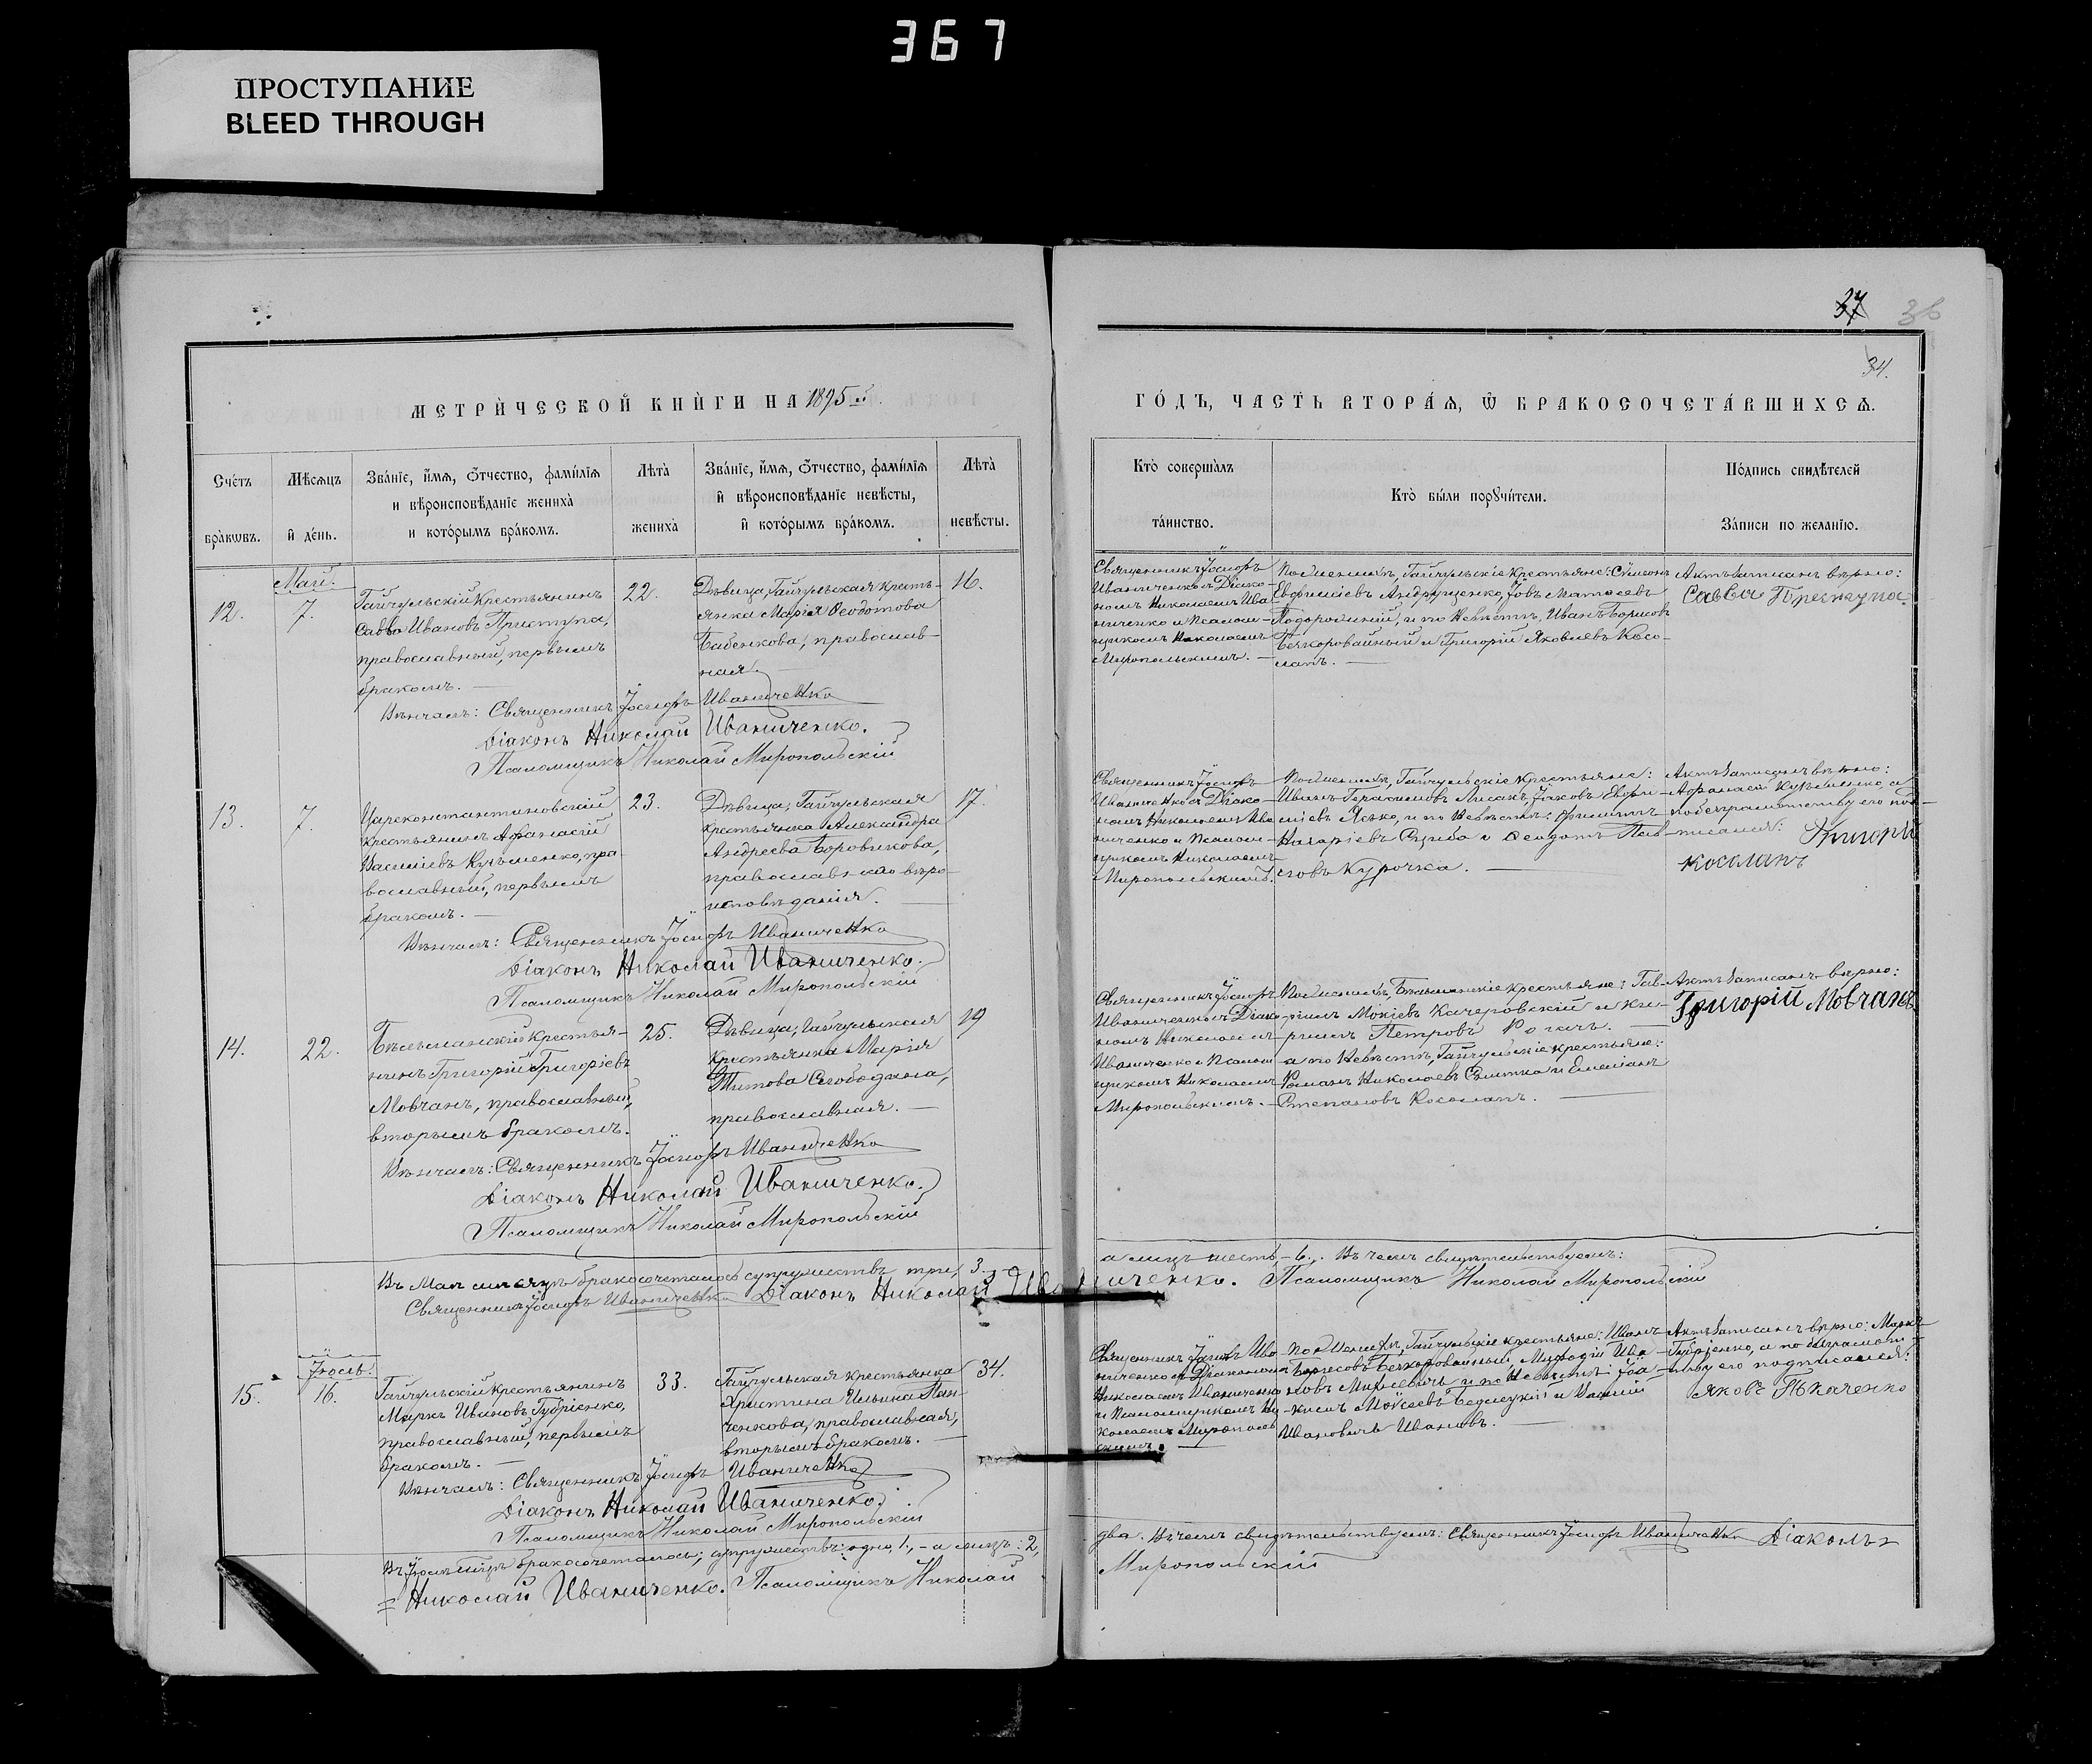 367
ПРОСТУПАНИЕ
BLEED THROUGH
27 36
34.
МЕТРИ́ЧЕСКОЙ КНИ́ГИ НА 1895 й
ГО́ДЪ, ЧАСТЬ ВТОРА́Я, Ѡ БРАКОСОЧЕТА́ВШИХСѦ.
Сче́тъ бра́кѡвъ.
Мѣ́сѧцъ и҆ де́нь.
Зва́нїе, и҆́мѧ, ѻ҆́тчество, фамилїѧ
и вѣроисповѣданїе жениха̀
и кото́рымъ бра́комъ.
Лѣта̀ жениха̀
Зва́нїе, и҆́мѧ, ѻ҆́тчество, фамилїѧ
и҆ вѣроисповѣданїе невѣ́сты,
и҆ кото́рымъ бра́комъ.
Лѣта̀ невѣ́сты.
Кто̀ соверша́лъ та́инство.
Кто̀ бы́ли порꙋчи́тели.
По́дпись свидѣ́телей
За́писи по жела́нїю.
Май.
12.
7.
Гайчульскій крестьянинъ
Савва Ивановъ Приступа,
православный, первымъ
бракомъ.
22.
Дѣвица, Гайчульская кресть-
янка Марія Ѳеодотова
Бабенкова, православ-
ная.
16.
Священникъ Іосифъ
Иваниченко съ Діако-
номъ Николаемъ Ива
ниченко и Псалом-
щикомъ Николаемъ
Миропольскимъ.
По Женихѣ, Гайчульскіе крестьяне: Сѵмеонъ
Евфиміевъ Андрущенко, Іовъ Матѳеевъ
Подорожній, и по Невѣстѣ, Иванъ Борисовъ
Безкоровайный и Григорій Яковлевъ Косо-
лапъ.
Актъ записанъ вѣрно:
Савва Приступа.
Вѣнчалъ: Священникъ Іосифъ Иваниченко
Діаконъ Николай Иваниченко.
Псаломщикъ Николай Миропольскій
13.
7.
Цареконстантиновскій
крестьянинъ Аѳанасій
Василіевъ Кузьменко, пра-
вославный, первымъ
бракомъ.
23.
Дѣвица, Гайчульская
крестьянка Александра
Андреева Боровикова,
православнаго вѣро-
исповѣданія.
17.
Священникъ Іосифъ
Иваниченко съ Діако-
номъ Николаемъ Ива
ниченко и Псалом-
щикомъ Николаемъ
Миропольскимъ.
По Женихѣ, Гайчульскіе крестьяне:
Иванъ Герасимовъ Лисакъ, Іаковъ Евфи-
міевъ Яско, и по Невѣстѣ: Филиппъ
Назаріевъ и Ѳеодотъ Пав-
ловъ Курочка.
Актъ записанъ вѣрно:
Аѳанасій Кузьменко, а
по безграмотству его под-
писался: Григорій
Косолапъ
Вѣнчалъ: Священникъ Іосифъ Иваниченко
Діаконъ Николай Иваниченко.
Псаломщикъ Николай Миропольскій
14.
22.
Бѣльманскій крестья-
нинъ Григорій Григоріевъ
Мовчанъ, православный,
вторымъ бракомъ.
25.
Дѣвица, Гайчульская
крестьянка Марія
Титова Слободяна,
православная.
19
Священникъ Іосифъ
Иваниченко съ Діако-
номъ Николаемъ
Иваниченко и Псалом-
щикомъ Николаемъ
Миропольскимъ.
По Женихѣ, Бѣльманскіе крестьяне: Гав-
ріилъ Мокіевъ Качеровскій и Ки-
риллъ Петровъ Рогачъ.
а по Невѣстѣ, Гайчульскіе крестьяне:
Романъ Николаевъ и Емеліанъ
Степановъ Косолапъ.
Актъ записанъ вѣрно:
Григорій Мовчанъ
Вѣнчалъ: Священникъ Іосифъ Иваниченко
Діаконъ Николай Иваниченко.
Псаломщикъ Николай Миропольскій
Въ Маѣ мѣсяцѣ бракосочеталось супружествъ три, 3. а лицъ шесть, - 6. Въ чемъ свидѣтельствуемъ:
Священникъ Іосифъ Иваниченко Діаконъ Николай Иваниченко. Псаломщикъ Николай Миропольскій
Іюль.
15.
16.
Гайчульскій крестьянинъ
Маркъ Ивановъ Губріенко,
православный, первымъ
бракомъ.
33.
Гайчульская крестьянка
Христина Ильина Пан-
ченкова, православная,
вторымъ бракомъ.
34.
Священникъ Іосифъ Ива
ниченко съ Діакономъ
Николаемъ Иваниченко
и Псаломщикомъ Ни
колаемъ Мирополь
скимъ.
По Женихѣ, Гайчульскіе крестьяне: Иванъ
Борисовъ Безкоровайный, Меѳодій Ива-
новъ и по Невѣстѣ: Іоа-
кимъ Моисеевъ и
Ивановичъ Ивановъ.
Актъ записанъ вѣрно: Маркъ
Губріенко, а по безграмот-
ству его подписался:
Яковъ Ткаченко
Вѣнчалъ: Священникъ Іосифъ Иваниченко
Діаконъ Николай Иваниченко.
Псаломщикъ Николай Миропольскій
Въ Іюлѣ мѣцѣ бракосочеталось, супружествъ: одно, 1., - а лицъ: 2, два. Въ чемъ свидѣтельствуемъ: Священникъ Іосифъ Иваниченко Діаконъ
Николай Иваниченко. Псаломщикъ Николай Миропольскій